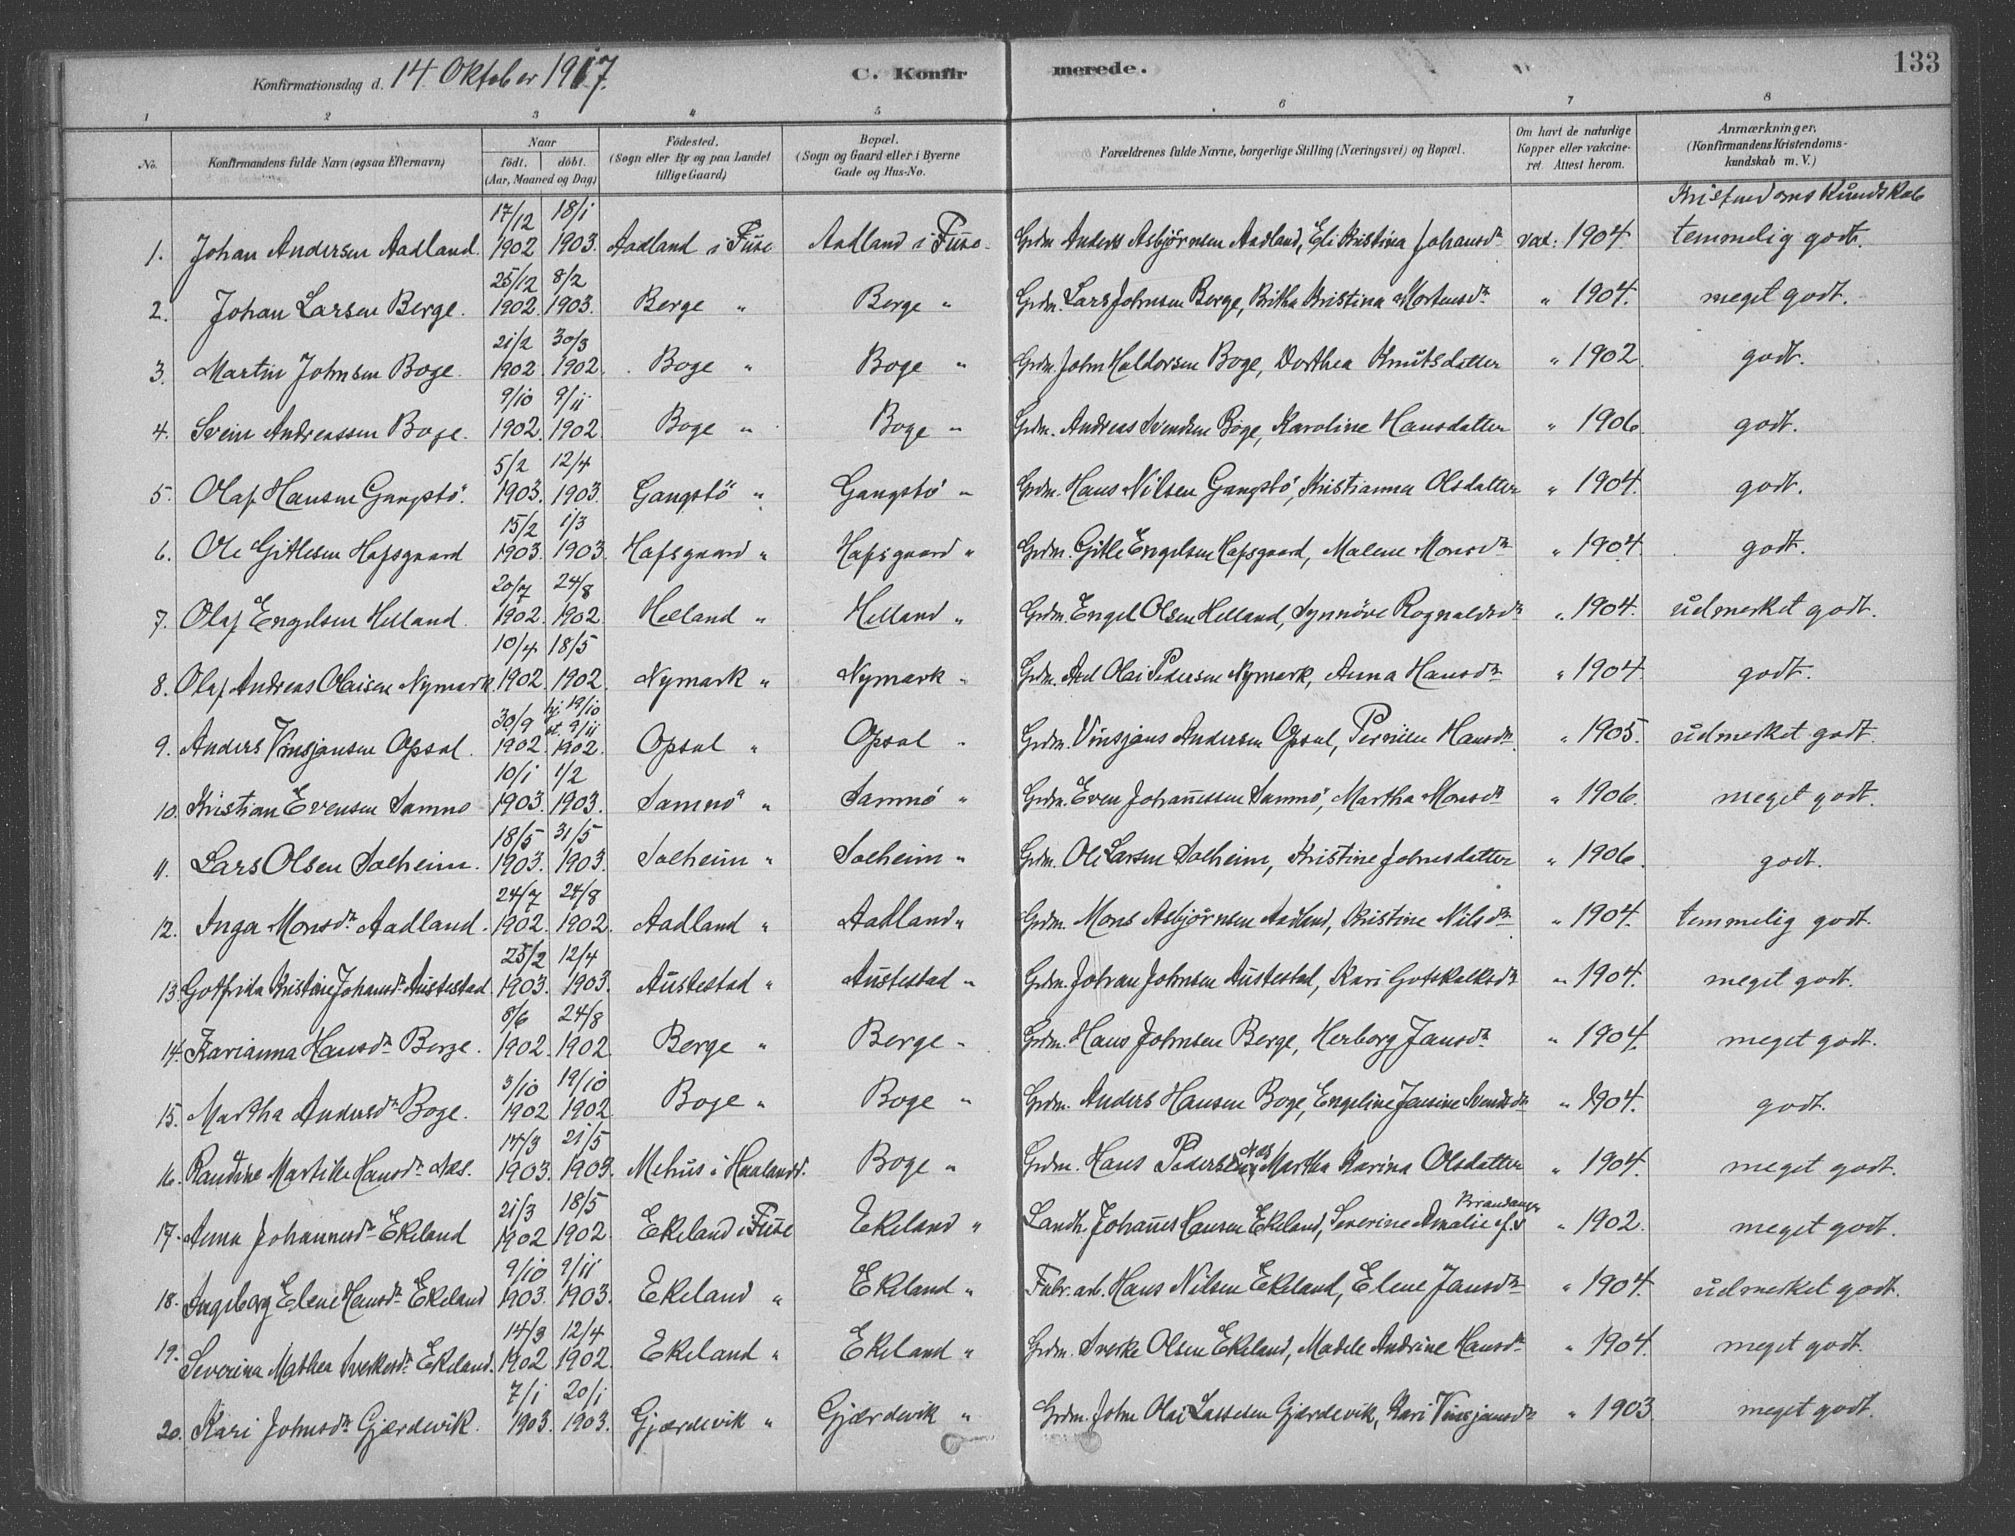 Konfirmationsdag d. 14 Oktober 1917. C. Konfirmerede. 133
1 2 3 4 5 6 7 8
No. Konfirmandens fulde Navn (ogsaa Efternavn) Naar født. døbt. (Aar, Maaned og Dag) Fødested. (Sogn eller By og paa Landet tillige Gaard) Bopæl. (Sogn og Gaard eller i Byerne Gade og Hus-No. Forældrenes fulde Navne, borgerlige Stilling (Næringsvei) og Bopæl. Om havt de naturlige Kopper eller vakcineret. Attest herom. Anmærkninger. (Konfirmandens Kristendomskundskab m. V.)
Kristendoms Kundskab
1. Johan Andersen Aadland. 17/12 1902 18/1 1903. Aadland i Fuse Aadland i Fuse. Grdm. Anders Asbjørnsen Aadland, Eli Kristina Johansdr vac. 1904 temmelig godt.
2. Johan Larsen Berge. 25/12 1902. 8/2 1903. Berge " Berge " Grdm. Lars Johnsen Berge, Britha Kristina Mortensdr " 1904. meget godt.
3. Martin Johnsen Boge. 21/2 1902. 30/3 1902. Boge " Boge " Grdm. John Haldorsen Boge, Dorthea Knutsdatter " 1902. godt.
4. Svein Andreassen Boge. 9/10 1902. 9/11 1902. Boge " Boge " Grdm. Andreas Svendsen Boge, Karoline Hansdatter " 1906. godt.
5. Olaf Hansen Gangstø. 5/2 1903. 12/4 1903. Gangstö " Gangstø " Grdm. Hans Nilsen Gangstø, Kristianna Olsdatter " 1904. godt.
6. Ole Gitlesen Hafsgaard 15/2 1903. 1/3 1903. Hafsgaard " Hafsgaard " Grdm. Gitle Engelsen Hafsgaard, Malene Monsdr " 1904. godt.
7. Olaf Engelsen Helland. 20/7 1902. 24/8 1902. Helland " Helland " Grdm. Engel Olsen Helland, Synnøve Rognaldsdr " 1904. udmerket godt.
8. Olaf Andreas Olaisen Nymark 10/4 1902. 18/5 1902. Nymark " Nymark " Grdm. Axel Olai Pedersen Nymark, Anna Hansdr " 1904. godt.
9. Anders Vinsjansen Opsal. 30/9 1902 hj 19/10 st. 9/11 1902. Opsal " Opsal " Grdm. Vinsjans Andersen Opsal, Pernille Hansdr. " 1905. udmerket godt.
10. Kristian Evensen Samnø 10/1 1903. 1/2 1903. Samnö " Samnø " Grdm. Even Johanessen Samnø, Martha Monsdr " 1906. meget godt.
11. Lars Olsen Solheim. 18/5 1903. 31/5 1903. Solheim " Solheim " Grdm. Ole Larsen Solheim, Kristine Johnsdatter " 1906. godt.
12. Inga Monsdr Aadland. 24/7 1902. 24/8 1902. Aadland " Aadland " Grdm. Mons Asbjørnsen Aadland, Kristine Nilsdr " 1904. temmelig godt.
13. Gotfrida Kristine Johansdr Austestad 25/2 1903. 12/4 1903. Austestad " Austestad " Grdm. Johan Johnsen Austestad, Kari Gotskalksdr " 1904. meget godt.
14. Karianna Hansdr Berge. 8/6 1902. 24/8 1902. Berge " Berge " Grdm. Hans Johnsen Berge, Herborg Jansdr " 1904. meget godt.
15. Martha Andersdr Boge. 3/10 1902 19/10 1902 Boge " Boge " Grdm. Anders Hansen Boge, Engeline Jensine Svendsdr " 1904. godt.
16. Randine Martille Hansdr Næs. 14/3 1903. 21/5 1903. Mehus i Haalandsd. Boge " Grdm. Hans Pedersen Næs, Martha Karina Olsdatter " 1904. meget godt.
17. Anna Johannesdr Ekeland 21/3 1902 18/5 1902. Ekeland i Fuse Ekeland " Landh. Johanes Hansen Ekeland, Severine Amalie f. Brandanger " 1902. meget godt.
18. Ingeborg Elene Hansdr Ekeland 9/10 1903. 9/11 1903. Ekeland " Ekeland " Fabr. arb. Hans Nilsen Ekeland, Elene Jansdr " 1904. udmerket godt.
19. Severina Mathea Sverkesdr Ekeland. 14/3 1902 12/4 1902. Ekeland " Ekeland " Grdm. Sverke Olsen Ekeland, Madele Andrine Hansdr " 1904. meget godt.
20. Kari Johnsdr Gjærdevik. 7/1 1903. 20/1 1903. Gjærdevik " Gjærdevik " Grdm. John Olai Lassesen Gjærdevik, Kari Vinsjansdr " 1903 meget godt.